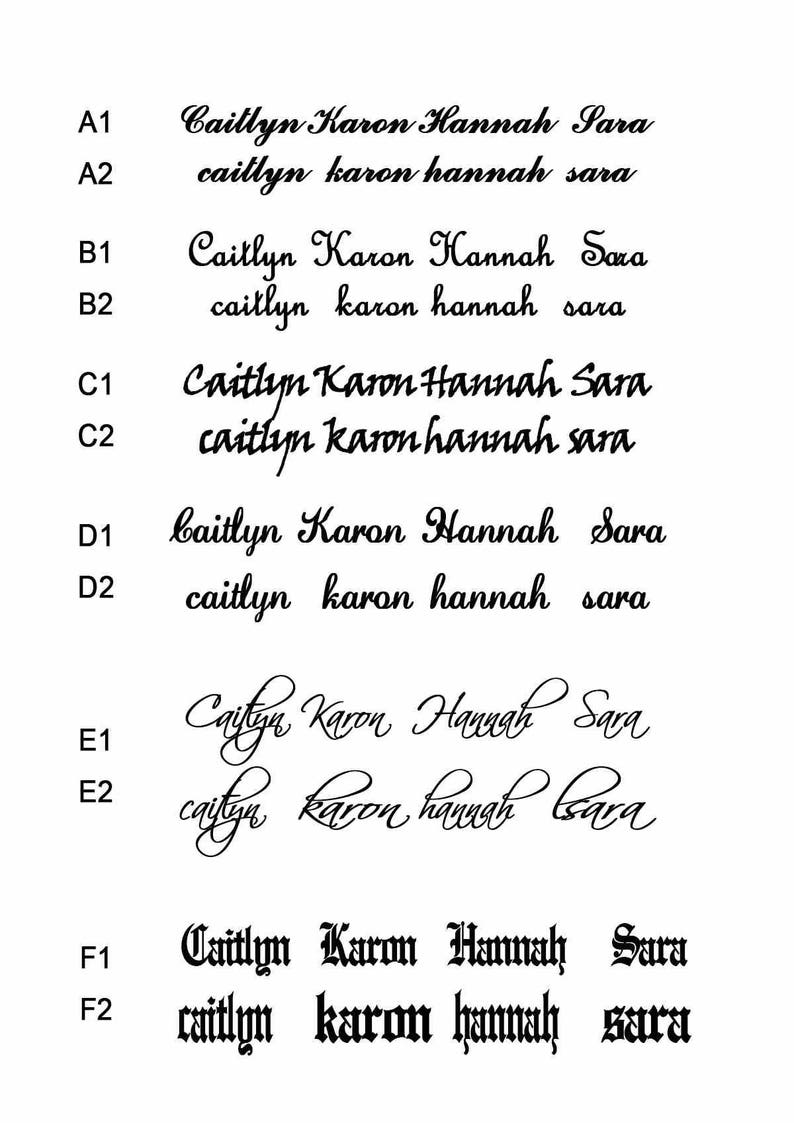 A1 Caitlyn Karon Hannah Sara
A2 caitlyn karon hannah sara
B1 Caitlyn Karon Hannah Sara
B2 caitlyn karon hannah sara
C1 Caitlyn Karon Hannah Sara
C2 caitlyn karon hannah sara
D1 Caitlyn Karon Hannah Sara
D2 caitlyn karon hannah sara
E1 Caitlyn Karon Hannah Sara
E2 caitlyn karon hannah lsara
F1 Caitlyn Karon Hannah Sara
F2 caitlyn karon hannah sara